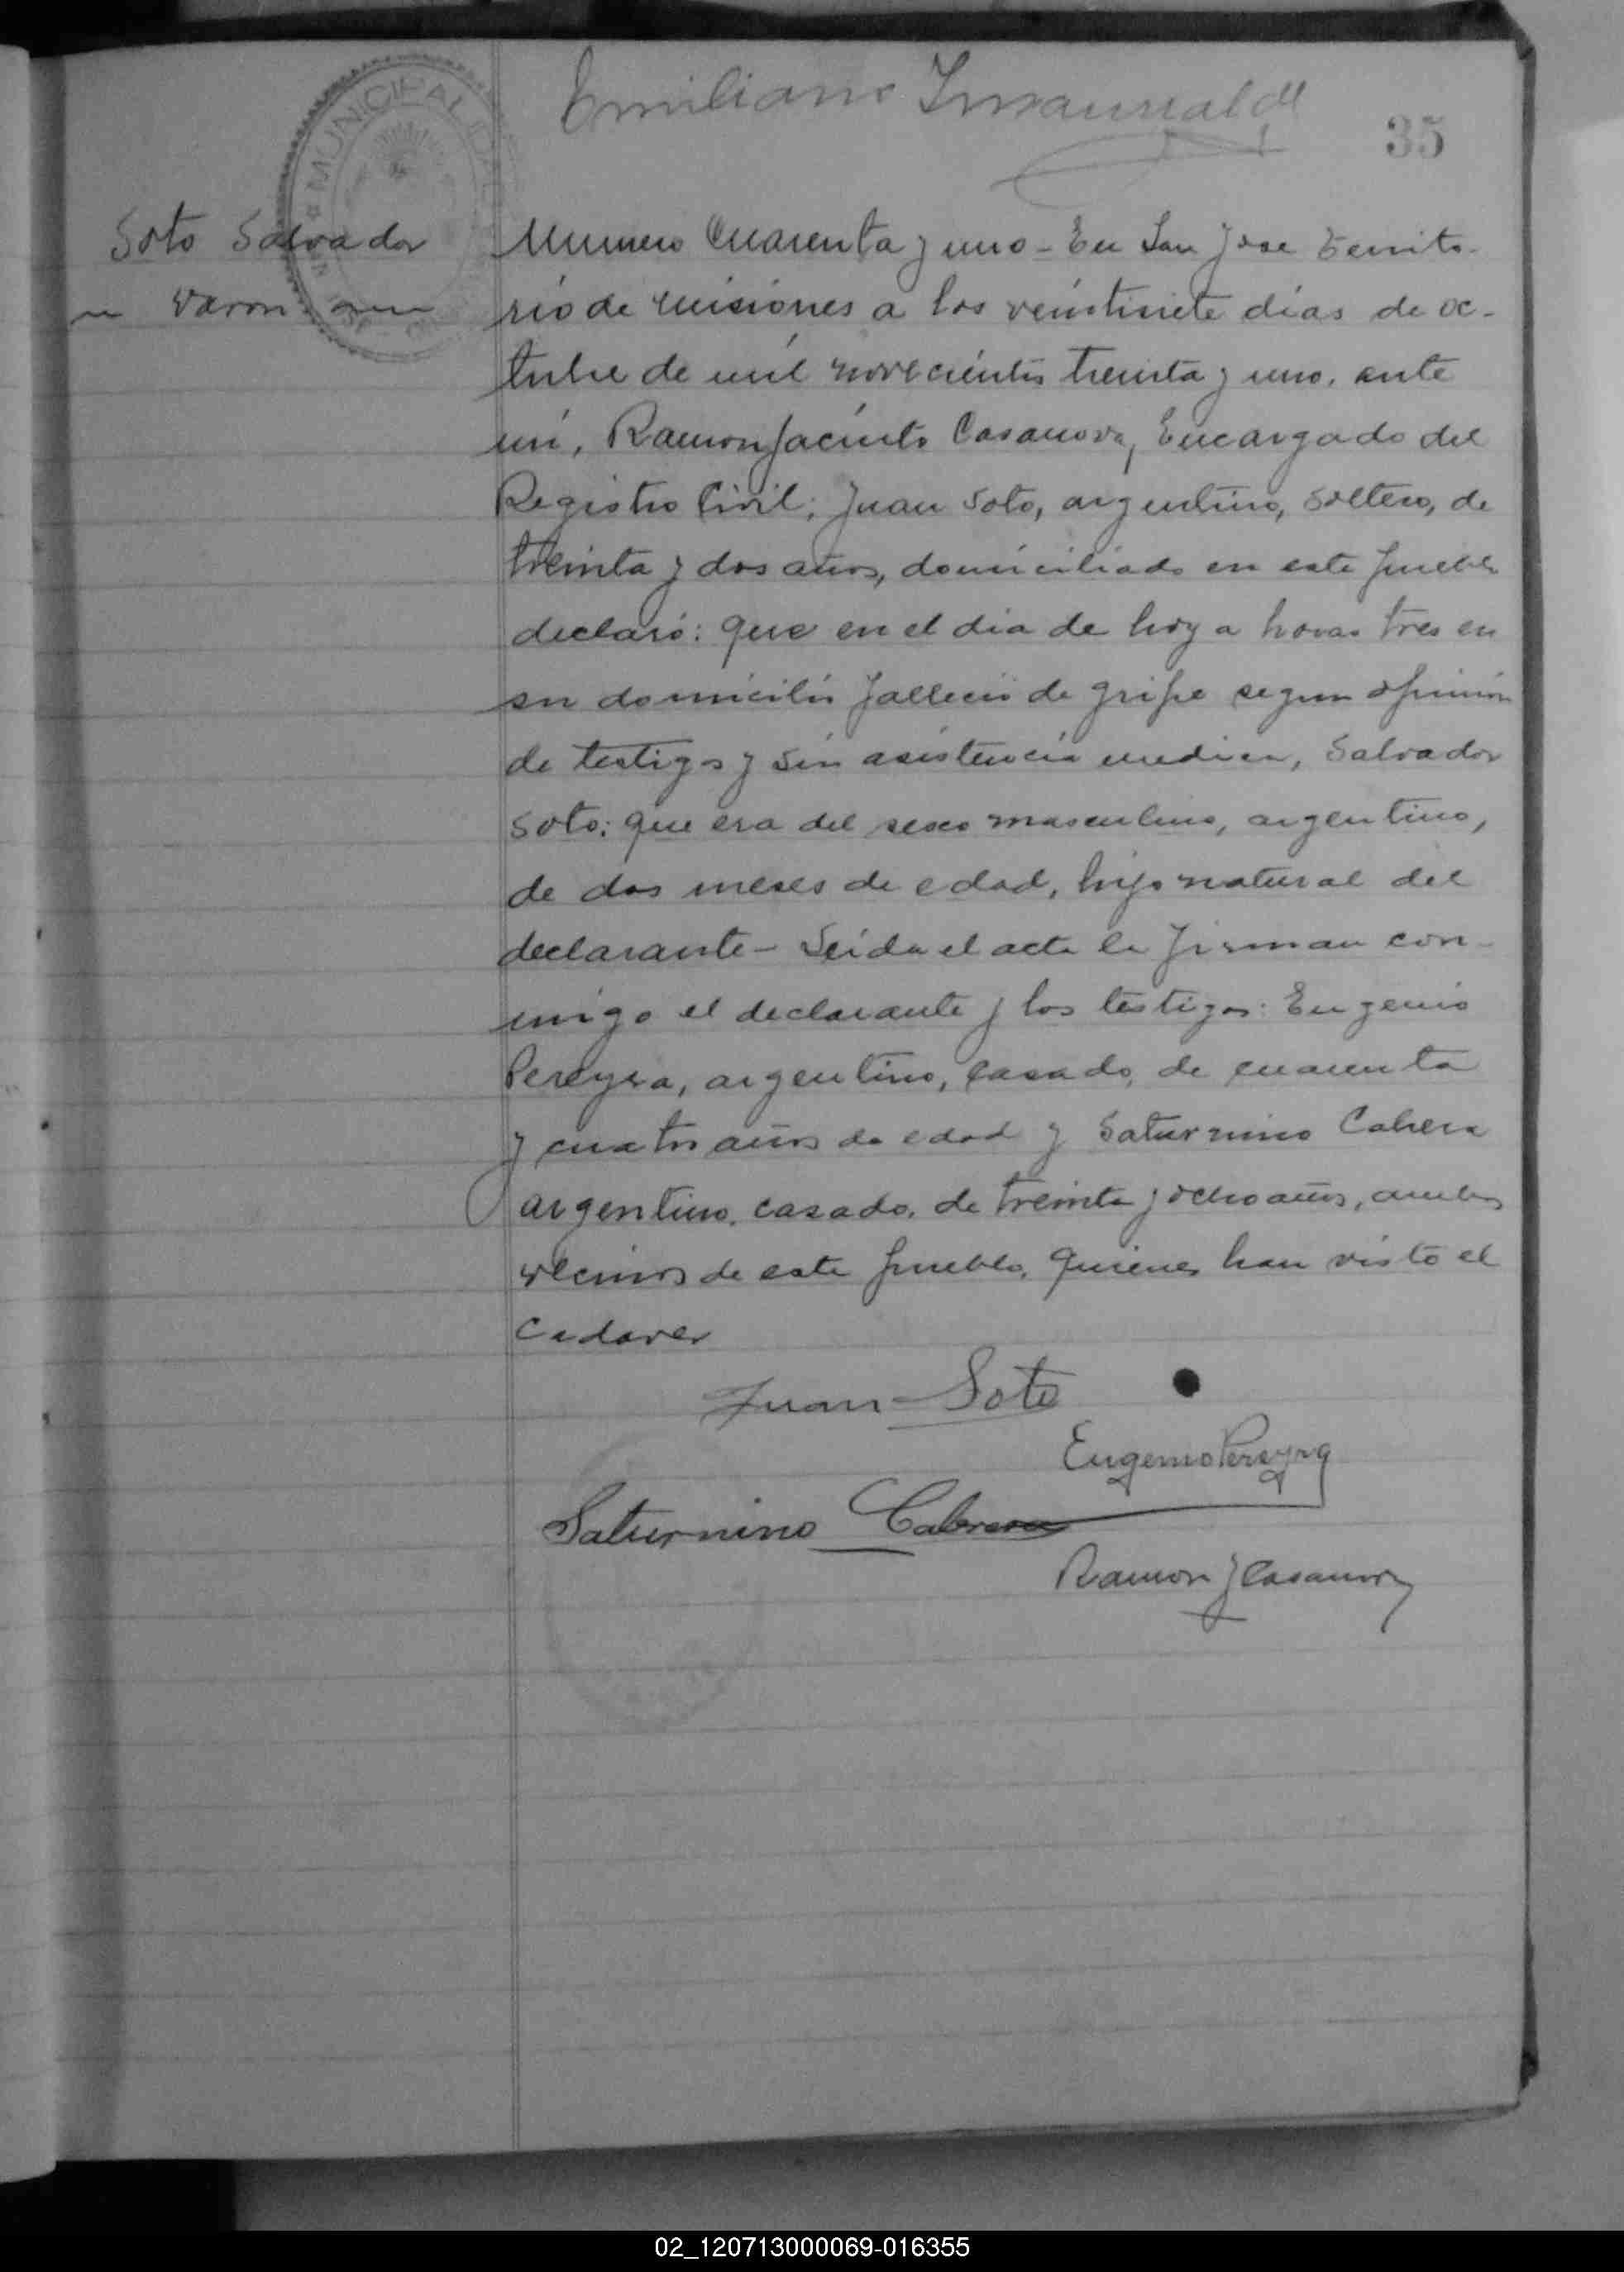 Emiliano Insaurralde
35
MUNICIPALIDAD
Soto Salvador
Varon
Numero Cuarenta y uno - En San Jose Territo-
rio de Misiones a los veintisiete dias de oc-
tubre de mil novecientos treinta y uno, ante
mí, Ramon Jacinto Casanova, Encargado del
Registro Civil; Juan Soto, argentino, soltero, de
treinta y dos años, domiciliado en este pueblo
declaró: que en el dia de hoy a horas tres en
su domicilio falleció de gripe segun opinion
de testigos y sin asistencia medica, Salvador
Soto: que era del sexo masculino, argentino,
de dos meses de edad, hijo natural del
declarante - Leida el acta la firman con-
migo el declarante y los testigos: Eugenio
Pereyra, argentino, casado, de cuarenta
y cuatro años de edad y Saturnino Cabrera
argentino, casado, de treinta y ocho años, ambos
vecinos de este pueblo, quienes han visto el
cadaver
Juan Soto
Eugenio Pereyra
Saturnino Cabrera
Ramon J Casanova
02_120713000069-016355